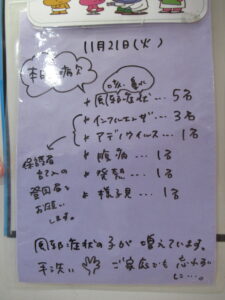 11月21日(火)
本日の病欠
咳、鼻水
・風邪症状… 5名
・インフルエンザ… 3名
・アデノウイルス… 1名
・腹痛… 1名
・発熱… 1名
・様子見… 1名
保護者
記入の
登園届を
お願い
します。
風邪症状の子が増えています。
手洗い ご家庭でも忘れず
に…。